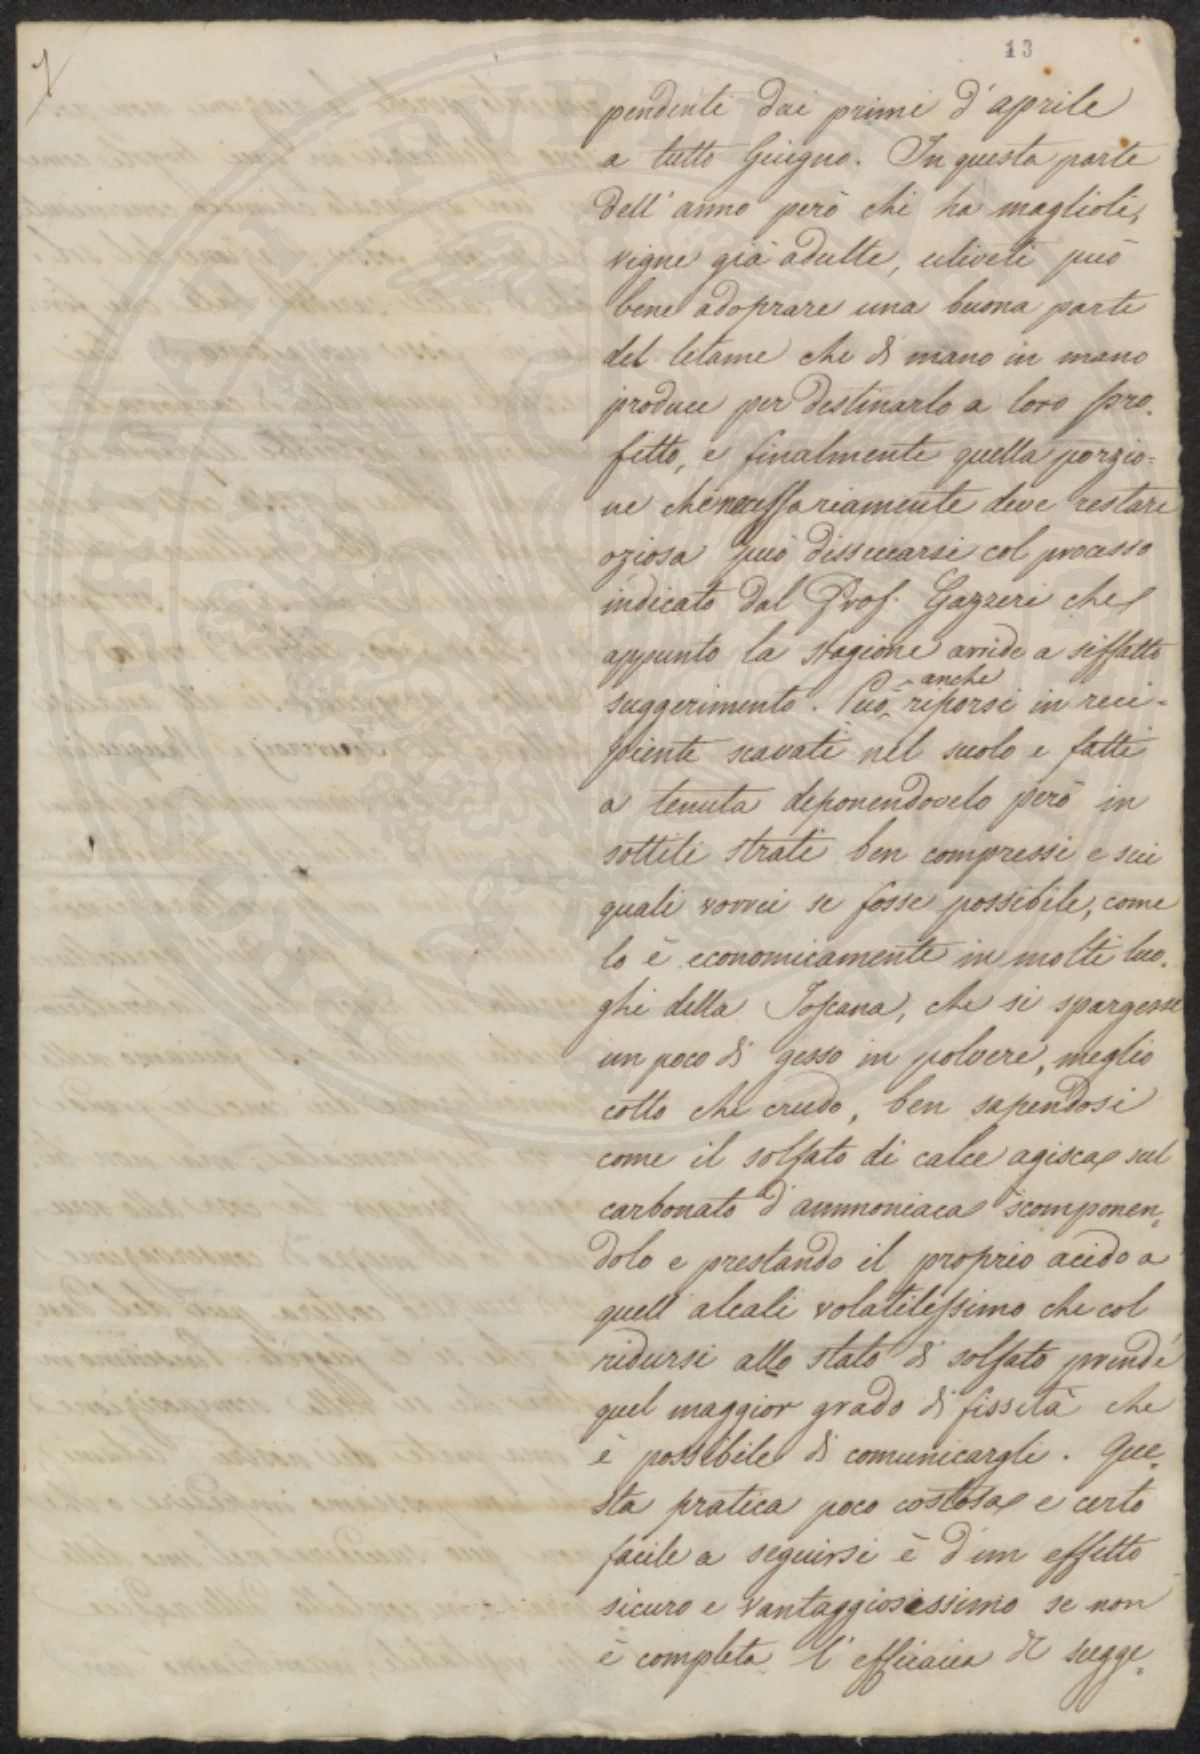 13
pendente dai primi d'aprile
a tutto Giugno. In questa parte
dell'anno però chi ha maglioli,
vigne già adulte, uliveti può
bene adoprare una buona parte
del letame che di mano in mano
produce per destinarlo a loro pro-
fitto, e finalmente quella porzio=
ne che necessariamente deve restare
oziosa può disseccarsi col processo
indicato dal Prof. Gazzeri che
appunto la stagione arride a siffatto
anche
suggerimento. Può riporsi in reci-
pienti scavati nel suolo e fatti
a tenuta deponendovelo però in
sottili strati ben compressi e sui
quali vorrei se fosse possibile, come
lo è economicamente in molti luo-
ghi della Toscana, che si spargesse
un poco di gesso in polvere, meglio
cotto che crudo, ben sapendosi
come il solfato di calce agisca sul
carbonato d'ammoniaca scomponen-
dolo e prestando il proprio acido a
quell'alcali volatilissimo che col
ridursi allo stato di solfato prende
quel maggior grado di fissità che
è possibile di comunicargli. Que-
sta pratica poco costosa e certo
facile a seguirsi è d'un effetto
sicuro e vantaggiosissimo se non
è completa l'efficacia di sugge-